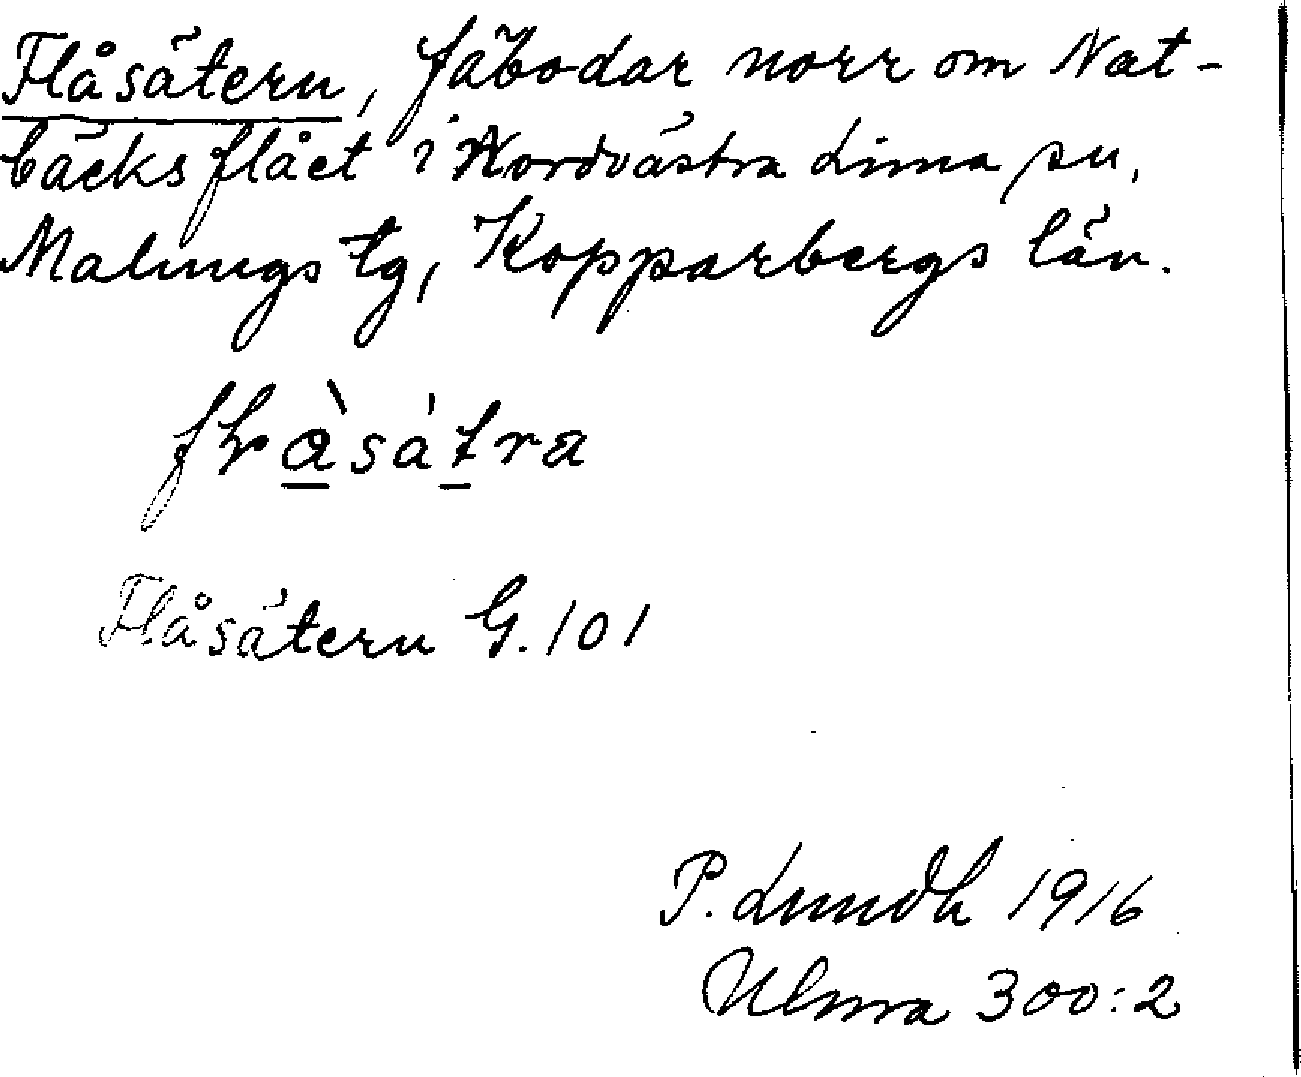 Flåsätern, fäbodar norr om Nat-
bäcksflået i Nordvästra Lima sn,
Malungs tg, Kopparbergs län.
Flåsätern G. 101
P. Lundh 1916
Ulma 300:2